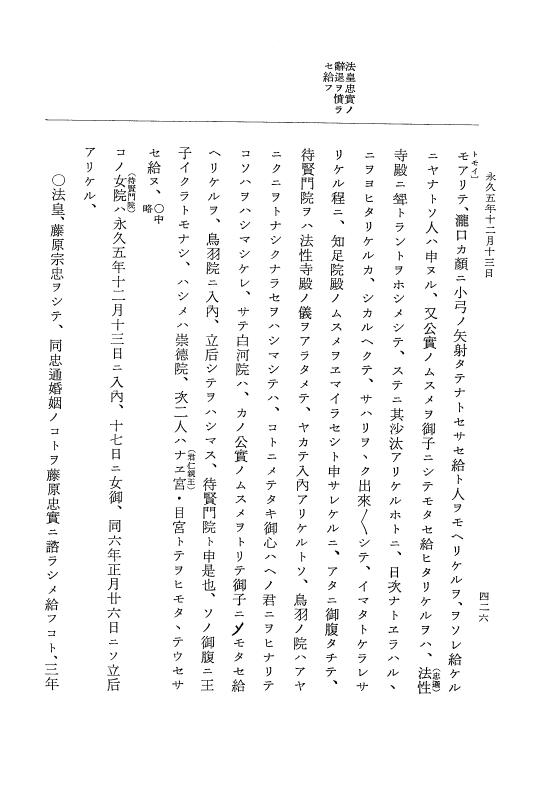 永久五年十二月十三日
四二六
法皇忠實ノ
辭退ヲ憤ラ
セ給フ
トモイ」
モアリテ、瀧口カ顏ニ小弓ノ矢射タテナトセサセ給ト人ヲモヘリケルヲ、ヲソレ給ケル
ニヤナトソ人ハ申ヌル、又公實ノムスメヲ御子ニシテモタセ給ヒタリケルヲハ、法性
(忠通)
寺殿ニ聟トラントヲホシメシテ、ステニ其沙汰アリケルホトニ、日次ナトヱラハル、
ニヲヨヒタリケルカ、シカルヘクテ、サハリヲヽク出來〳〵シテ、イマタトケラレサ
リケル程ニ、知足院殿ノムスメヲヱマイラセシト申サレケルニ、アタニ御腹タチテ、
待賢門院ヲハ法性寺殿ノ儀ヲアラタメテ、ヤカテ入內アリケルトソ、鳥羽ノ院ハアヤ
ニクニヲトナシクナラセヲハシマシテハ、コトニメテタキ御心ハヘノ君ニヲヒナリテ
コソハヲハシマシケレ、サテ白河院ハ、カノ公實ノムスメヲトリテ御子ニノモタセ給
ヘリケルヲ、鳥羽院ニ入內、立后シテヲハシマス、待賢門院ト申是也、ソノ御腹ニ王
子イクラトモナシ、ハシメハ崇德院、次二人ハナヱ宮・目宮トテヲヒモタヽテウセサ
(君仁親王)
セ給ヌ、○中略
(待賢門院)
コノ女院ハ永久五年十二月十三日ニ入內、十七日ニ女御、同六年正月廿六日ニソ立后
アリケル、
○法皇、藤原宗忠ヲシテ、同忠通婚姻ノコトヲ藤原忠實ニ諮ラシメ給フコト、三年